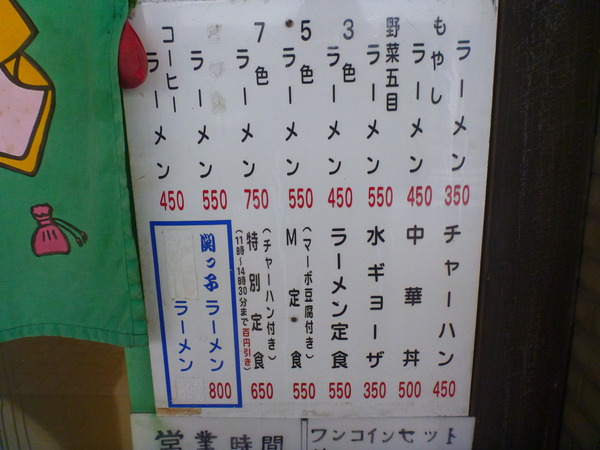 ラーメン 350
もやしラーメン 450
野菜五目ラーメン 550
3色ラーメン 450
5色ラーメン 550
7色ラーメン 750
ラーメン 550
コーヒーラーメン 450
チャーハン 450
中華丼 500
水ギョーザ 350
ラーメン定食 550
M定食 550
(マーボ豆腐付き)
特別定食 650
(チャーハン付き)
(11時〜14時30分まで百円引き)
関っ子ラーメン 800
ラーメン
営業時間
ワンコインセット